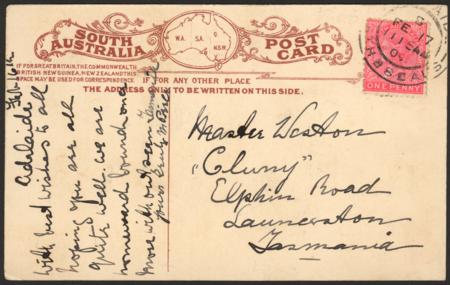 SOUTH AUSTRALIA
W.A. S.A. Q N.S.W.
POST CARD
IF FOR GREAT BRITAIN, THE COMMONWEALTH,
BRITISH NEW GUINEA, NEW ZEALAND THIS
SPACE MAY BE USED FOR CORRESPONDENCE.
IF FOR ANY OTHER PLACES
THE ADDRESS ONLY TO BE WRITTEN ON THIS SIDE.
ONE PENNY
FE 17
04
Master Weston
"Cluny"
Elphin Road
Launceston
Tasmania
Adelaide
Feb 16th
With best wishes to all
hoping you are all
quite well. we are
homeward bound once
more with our
yours truly